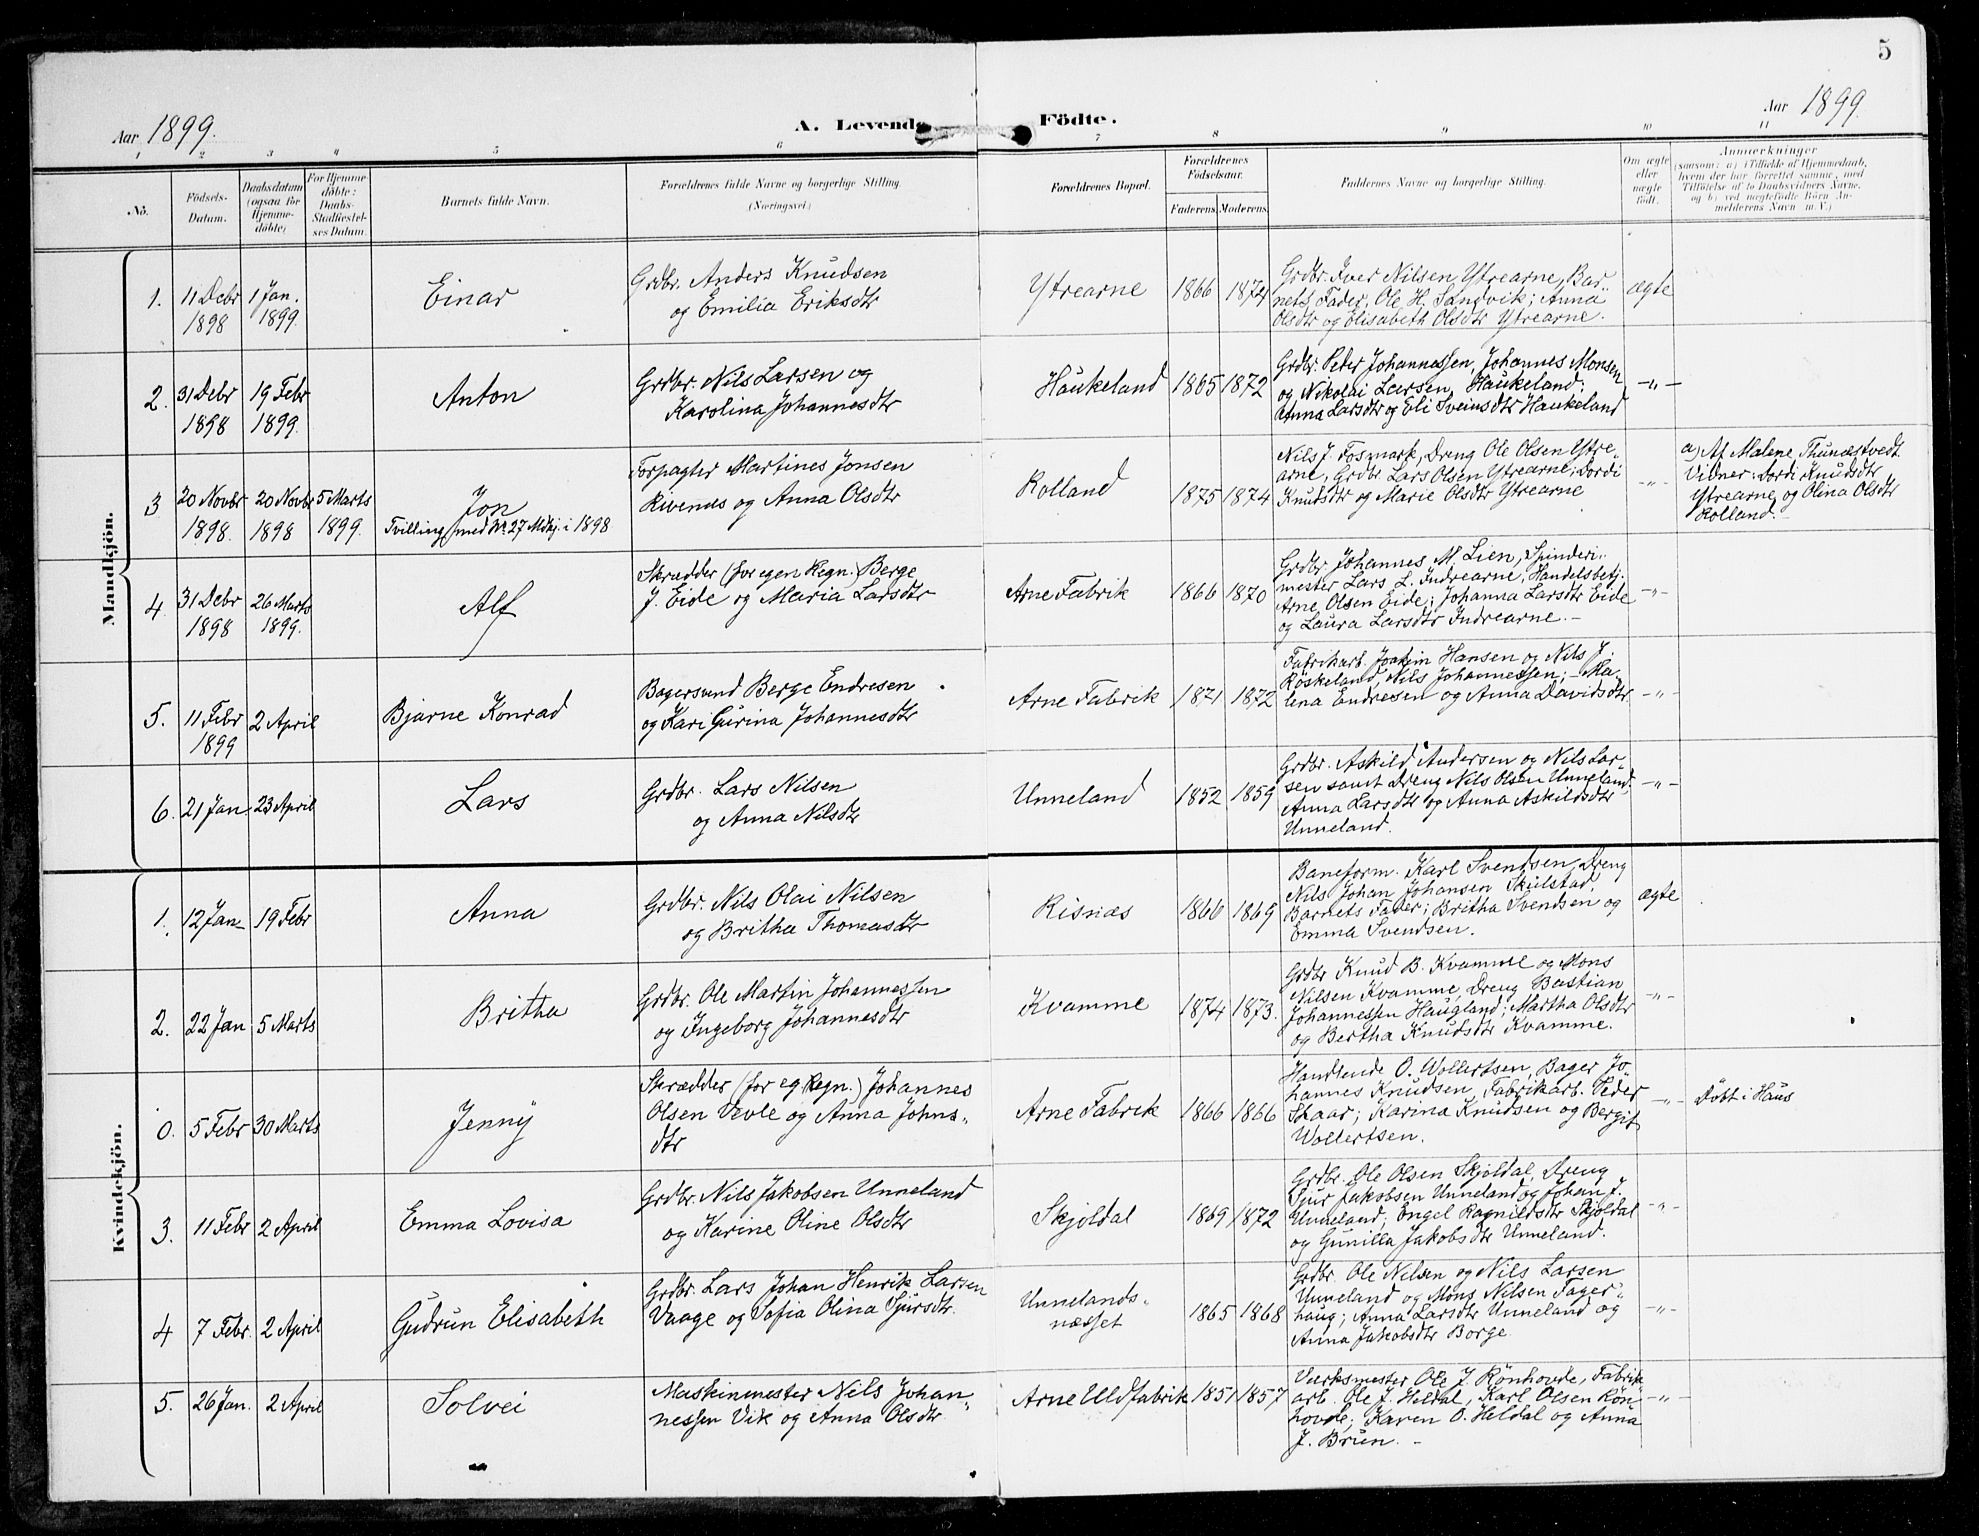 5
Aar 1899.
A. Levende Födte.
Aar 1899.
1 2 3 4 5 6 7 8 9 10 11
No.
Födsels-Datum.
Daabsdatum (ogsaa for Hjemmedöbte)
For Hjemmedöbte: Daabs-Stadfæstelses Datum.
Barnets fulde Navn.
Forældrenes fulde Navne og borgerlige Stilling. (Næringsvei.)
Forældrenes Bopæl.
Forældrenes Födselsaar.
Faderens. Moderens.
Faddernes Navne og borgerlige Stilling.
Om ægte eller uægte födt.
Anmærkninger
(saasom: a) i Tilfælde af Hjemmedaab, hvem der har forrettet samme, med Tilföielse af to Daabsvidners Navne, og b) ved uægtefödte Börn Anmelderens Navn m. V.)
Mandkjön.
1. 11 Debr 1898
1 Jan. 1899.
Einar
Grdbr. Anders Knudsen
og Emilia Eriksdtr
Ytrearne
1866 1874
Grdbr. Iver Nilsen Ytrearne, Bar-
nets Fader, Ole H. Sandvik; Anna
Olsdtr og Elisabeth Olsdtr Ytrearne.
ægte
2. 31 Debr 1898
19 Febr 1899.
Anton
Grdbr. Nils Larsen og
Karolina Johannesdtr
Haukeland
1865 1872
Grdbr. Peder Johannessen, Johannes Monsen
og Nikolai Larsen, Haukeland;
Anna Larsdtr og Eli Sveinsdtr Haukeland
-"-
3 20 Novbr 1898.
20 Novbr 1898
5 Marts 1899.
Jon
Tvilling med No 27 Mdkj. i 1898
Forpagter Martines Jonsen
Rivenes og Anna Olsdtr
Rolland
1875 1874
Nils J. Fosmark, Dreng Ole Olsen Ytre-
arne, Grdbr. Lars Olsen Ytrearne; Dordi
Knudsdtr og Marie Olsdtr Ytrearne
-"-
a) Af Malene Thunæstvedt.
Vidner: Dordi Knudsdtr
Ytrearne og Olina Olsdtr
Rolland.-
4. 31 Debr 1898
26 Marts 1899.
Alf
Skrædder (for egen Regn.) Berge
J. Eide og Maria Larsdtr
Arne Fabrik
1866 1870
Grdbr. Johannes M. Lien, Spinderi-
mester Lars L. Indrearne, Handelsbetj.
Arne Olsen Eide; Johanna Larsdtr Eide
og Laura Larsdtr Indrearne.-
-"-
5. 11 Febr 1899
2 April
Bjarne Konrad
Bagersvend Berge Endresen
og Kari Gurina Johannesdtr
Arne Fabrik
1871 1872
Fabrikarb. Joakim Hansen og Nils J.
Röskeland, Nils Johannessen; Ma-
lena Endresen og Anna Davidsdtr.
-"-
6. 21 Jan.
23 April
Lars
Grdbr. Lars Nilsen
og Anna Nilsdtr
Unneland
1852 1859
Grdbr. Askild Andersen og Nils Lar-
sen samt Dreng Nils Olsen Unneland;
Anna Larsdtr og Anna Askildsdtr
Unneland.
-"-
Kvindekjön.
1. 12 Jan
19 Febr
Anna
Grdbr. Nils Olai Nilsen
og Britha Thomasdtr
Risnæs
1866 1869
Baneform. Karl Svendsen, Dreng
Nils Johan Johansen Skulstad,
Barnets Fader; Britha Svendsen og
Emma Svendsen.
ægte
2. 22 Jan
5 Marts
Britha
Grdbr. Ole Martin Johannessen
og Ingeborg Johannesdtr
Kvamme
1874 1873.
Grdbr Knud B. Kvamme og Mons
Nilsen Kvamme, Dreng Bastian
Johannessen Haugland; Martha Olsdtr
og Bertha Knudsdtr Kvamme.
-"-
0. 5 Febr
30 Marts
Jenny
Skrædder (for eg. Regn.) Johannes
Olsen Vevle og Anna Johns-
dtr
Arne Fabrik
1866 1866
Handlende O. Wollertsen, Bager Jo-
hannes Knudsen, Fabrikarb. Peder
Skaar; Karina Knudsen og Bergit
Wollertsen.
-"-
Döbt i Haus
3. 11 Febr
2 April
Emma Lovisa
Grdbr. Nils Jakobsen Unneland
og Karine Oline Olsdtr
Skjoldal
1869 1872
Grdbr. Ole Olsen Skjoldal, Dreng
Sjur Jakobsen Unneland og Johan J.
Unneland; Engel Ragnildsdtr Skjoldal
og Gunilla Jakobsdtr Unneland.
-"-
4 7 Febr.
2 April
Gudrun Elisabeth
Grdbr. Lars Johan Henrik Larsen
Vaage og Sofia Olina Sjursdtr.
Unnelands-
næsset
1865 1868
Grdbr. Ole Nilsen og Nils Larsen
Unneland og Mons Nilsen Fager-
haug; Anna Larsdtr Unneland og
Anna Jakobsdtr Borge.
-"-
5. 26 Jan.
2 April
Solvei
Maskinmester Nils Johan-
nessen Vik og Anna Olsdtr
Arne Uldfabrik
1851 1857
Værksmester Ole J. Rönhovde, Fabrik
arb. Ole J. Heldal, Karl Olsen Rön-
hovde; Karen O. Heldal og Anna
J. Brun.-
-"-